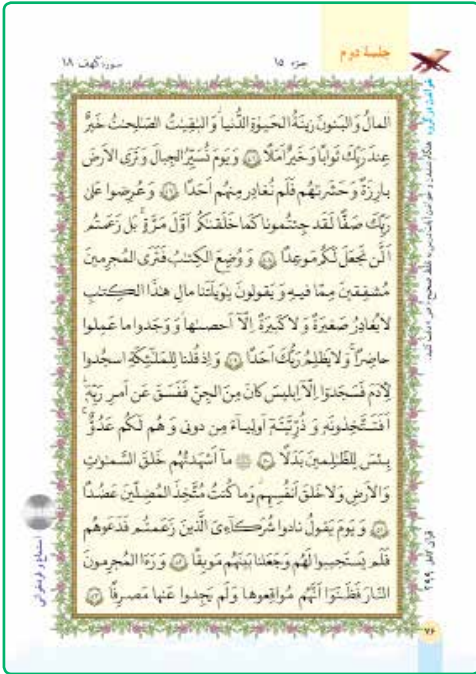 جلسهٔ دوم
جزء ۱۵
سوره کهف ۱۸
اَلمالُ وَ البَنونَ زینَةُ الحَیوٰةِ الدُّنیا وَ البٰقِیٰتُ الصّٰلِحٰتُ خَیرٌ
عِندَ رَبِّكَ ثَوابًا وَ خَیرٌ اَمَلًا ۴۶ وَ یَومَ نُسَیِّرُ الجِبالَ وَ تَرَی الاَرضَ
بارِزَةً وَ حَشَرنٰهُم فَلَم نُغادِر مِنهُم اَحَدًا ۴۷ وَ عُرِضوا عَلیٰ
رَبِّكَ صَفًّا لَقَد جِئتُمونا کَما خَلَقنٰکُم اَوَّلَ مَرَّةٍ بَل زَعَمتُم
اَلَّن نَجعَلَ لَکُم مَوعِدًا ۴۸ وَ وُضِعَ الکِتٰبُ فَتَرَی المُجرِمینَ
مُشفِقینَ مِمّا فیهِ وَ یَقولونَ یٰوَیلَتَنا مالِ هٰذَا الکِتٰبِ
لا یُغادِرُ صَغیرَةً وَ لا کَبیرَةً اِلّا اَحصٰها وَ وَجَدوا ما عَمِلوا
حاضِرًا وَ لا یَظلِمُ رَبُّكَ اَحَدًا ۴۹ وَ اِذ قُلنا لِلمَلٰئِکَةِ اسجُدوا
لِاٰدَمَ فَسَجَدوا اِلّا اِبلیسَ کانَ مِنَ الجِنِّ فَفَسَقَ عَن اَمرِ رَبِّه
اَفَتَتَّخِذونَه وَ ذُرِّیَّتَه اَولِیاءَ مِن دونی وَ هُم لَکُم عَدُوٌّ
بِئسَ لِلظّٰلِمینَ بَدَلًا ۵۰ ما اَشهَدتُهُم خَلقَ السَّمٰوٰتِ
وَ الاَرضِ وَ لا خَلقَ اَنفُسِهِم وَ ما کُنتُ مُتَّخِذَ المُضِلّینَ عَضُدًا
۵۱ وَ یَومَ یَقولُ نادوا شُرَکاءِیَ الَّذینَ زَعَمتُم فَدَعَوهُم
فَلَم یَستَجیبوا لَهُم وَ جَعَلنا بَینَهُم مَوبِقًا ۵۲ وَ رَءَا المُجرِمونَ
النّارَ فَظَنّوا اَنَّهُم مُواقِعوها وَ لَم یَجِدوا عَنها مَصرِفًا ۵۳
استماع و هم‌خوانی
قرآن کامل ۲۹۹
۷۶